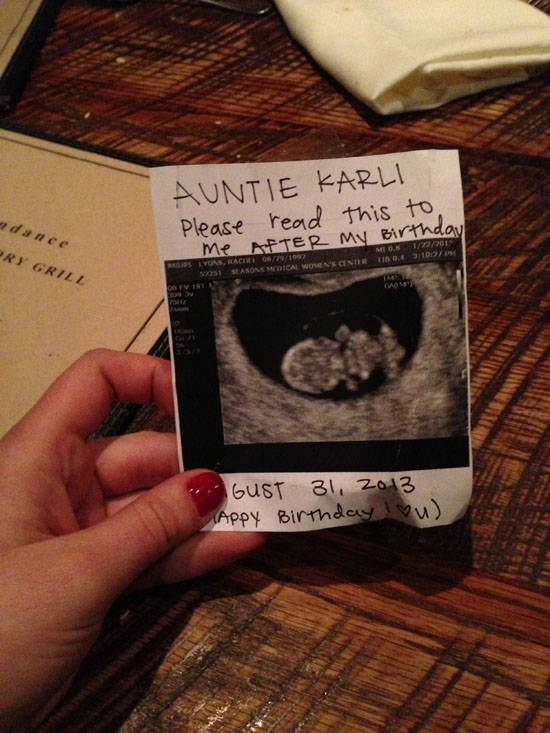 ndance
ORY GRILL
AUNTIE KARLI
Please read this to
me AFTER my Birthday
PHILIPS LYONS, RACHEL 08/29/1992 MI 0.8 1/22/201
52251 SEASONS MEDICAL WOMEN'S CENTER TIB 0.4 3:10:27 PM
GUST 31, 2013
APPY Birthday! ♡ U)